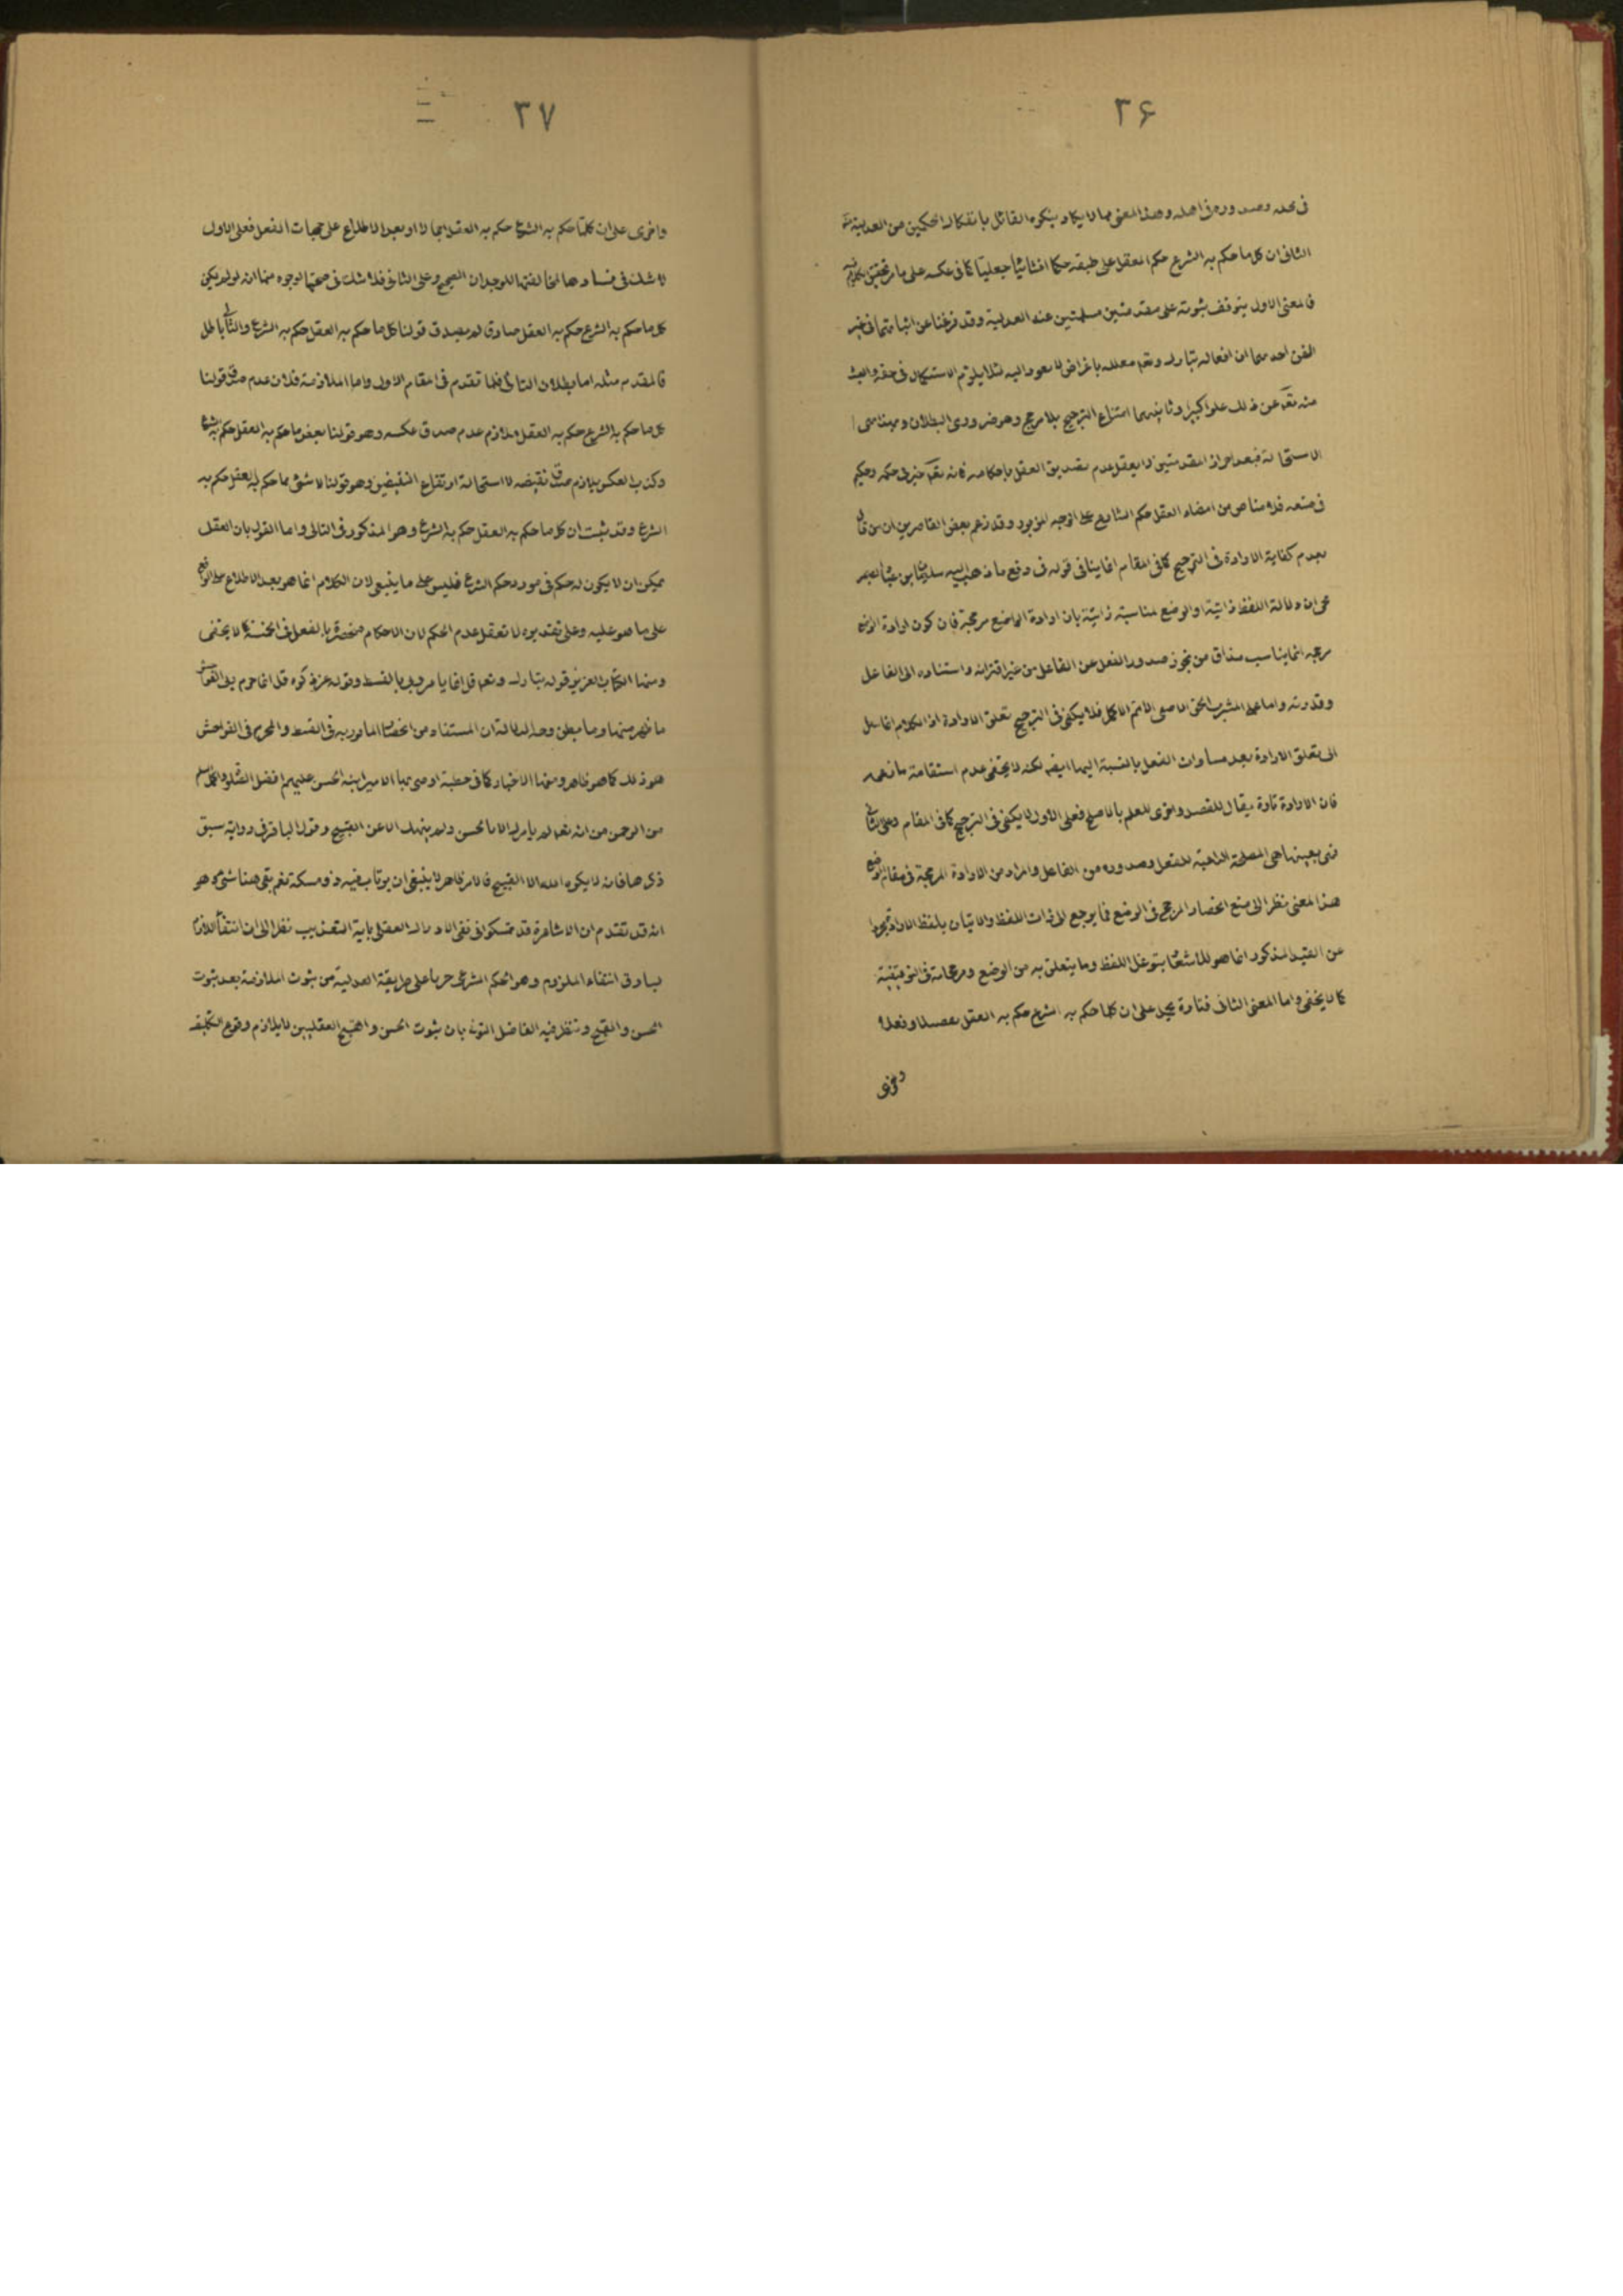 ۳۶
في محله وصدوره في اهله وهذا المعنى مما لا يكاد ينكره القائل بانفكاك الحكمين من العدلية
الثاني ان كل ما حكم به الشرع حكم العقل على طبقه حكما انشائيا جعليا كما في عكسه على ما مر تحقيق
فالمعنى الاول يتوقف ثبوته على مقدمتين مسلمتين عند العدلية وقد فرغنا عن اثباتهما في غير
الفن احديهما ان افعاله تبارك وتعم معللة باغراض لا يعود اليه لئلا يلزم الاستكمال في حقه والعبث
منه تعم عن ذلك علوا كبيرا وثانيهما امتناع الترجيح بلا مرجح وهو ضروري البطلان و
الاستحالة فبعد احراز المقدمتين لا يعقل عدم تصديق العقل باحكامه فانه تعم خبير في حكمه وحكيم
في صنعه فلا مناص من امضاء العقل حكم الشارع على الوجه المزبور وقد زعم بعض القاصرين ان من قال
بعدم كفاية الارادة في الترجيح كما في المقام انما ينافي قوله في دفع ما ذهب اليه سليمان بن عباد الصيمر
من ان دلالة اللفظ ذاتية او الوضع مناسبة ذاتية بان ارادة الواضع مرجحة فان كون ارادة الواضع
مرجحه انما يناسب مذاق من يجوز صدور الفعل عن الفاعل من غير اقترانه واستناده الى الفاعل
وقدرته واما على المشرب الحق الاصفى الاتم الاكمل فلا يكفى في الترجيح تعلق الارادة اذ الكلام انما
الى تعلق الارادة بعد مساوات الفعل بالنسبة اليها ايضا لكنه لا يخفى عدم استقامة ما زعمه
فان الارادة تارة يقال للقصد واخرى للعلم بالاصلح فعلى الاول لا يكفى في الترجيح كما في المقام وعلى الثاني
فهى بعينها هي المصلحة الداعية للفعل وصدوره من الفاعل والمراد من الارادة المرجحة في مقام الوضع
هذا المعنى نظرا الى منع انحصار المرجح في الوضع فيما يرجع الى ذات اللفظ والاتيان بلفظ الارادة مجردا
عن القيد المذكور انما هو للاشعار بتوغل اللفظ وما يتعلق به من الوضع ومرجحاته في التوقيفية
كما لا يخفى واما المعنى الثاني فتارة يحمل على ان كلما حكم به الشرع حكم به العقل تفصيلا وفعلا
واخرى
۳۷
واخرى على ان كلما حكم به الشرع حكم به العقل اجمالا او بعد الاطلاع على جهات الفعل فعلى الاول
لا شك في فساده لمخالفتها للوجدان الصحيح وعلى الثاني فلا شك في صحتها لوجوه منها انه لو لم يكن
كل ما حكم به الشرع حكم به العقل صادق لم يصدق قولنا كل ما حكم به العقل حكم به الشرع والتالي باطل
فالمقدم مثله اما بطلان التالي فلما تقدم في المقام الاول واما الملازمة فلان عدم صدق قولنا
كل ما حكم به الشرع حكم به العقل ملازم عدم صدق عكسه وهو قولنا بعض ما حكم به العقل حكم به الشرع
وكذب العكس يلازم صدق نقيضه لاستحالة ارتفاع النقيضين وهو قولنا لا شئ مما حكم به العقل حكم به
الشرع وقد ثبت ان كل ما حكم به العقل حكم به الشرع وهو المذكور في التالي واما القول بان العقل
يمكن ان لا يكون له حكم في مورد حكم الشرع فليس على ما ينبغي لان الكلام انما هو بعد الاطلاع على الواقع
على ما هو عليه وعلى تقديره لا تعقل عدم الحكم لان الاحكام منحصرة بالفعل في الخمسة كما لا يخفى
ومنها الكتاب العزيز قوله تبارك وتعم قل انما يامر ربي بالقسط وقوله عز ذكره قل انما حرم ربي الفواحش
ما ظهر منها وما بطن وجه الدلالة ان المستفاد من انحصار المامور به في القسط والمحرم في الفواحش
هو ذلك كما هو ظاهر ومنها الاخبار كما في خطبة اوصى بها الامير ابنه الحسن عليهم افضل الصلوة والسلام
من الوحي من انه تعم لم يامرك الا بالحسن ولم ينهك الا عن القبيح وقول الباقر في رواية سبق
ذكرها فانه لا يكره الله الا القبيح فالامر ظاهر لا ينبغي ان يرتاب فيه ذو مسكة نعم بقي هنا شئ وهو
انه قد تقدم ان الاشاعرة قد تمسكوا في نفي الادراك العقلي باية التعذيب نظرا الى ان انتفاء اللازم
يساوق انتفاء الملزوم وهو الحكم الشرعي جريا على طريقة العدلية من ثبوت الملازمة بعد ثبوت
الحسن والقبح وتنظر فيه الفاضل التوني بان ثبوت الحسن والقبح العقليين لا يلازم وقوع التكليف